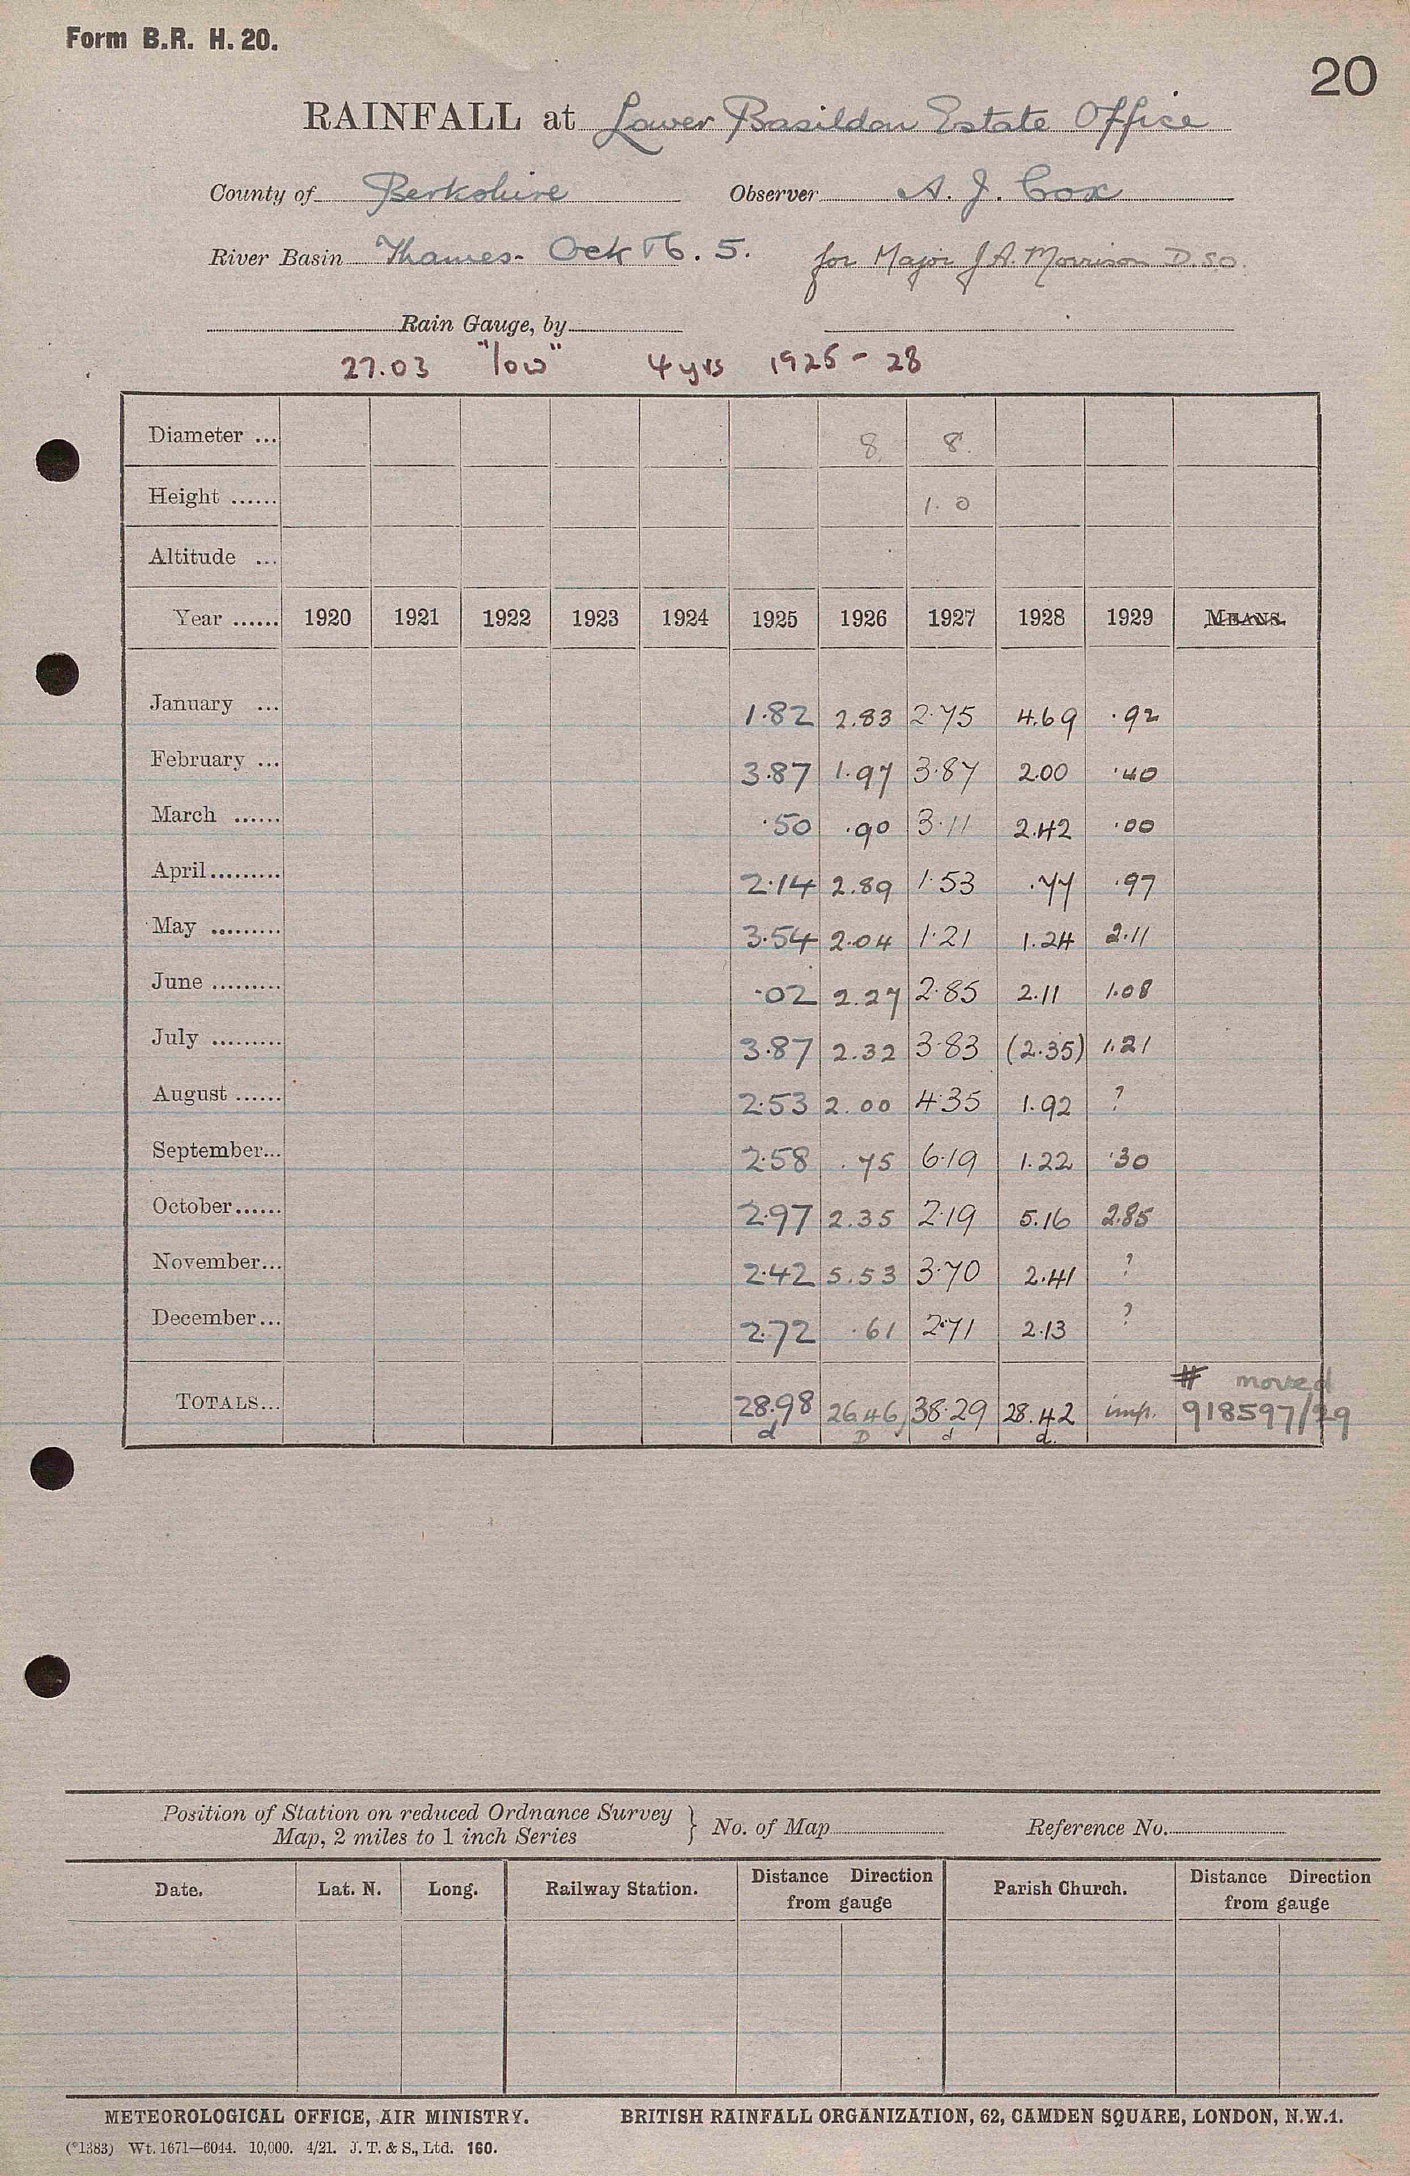 Form B.R. H. 20.
20
RAINFALL at Lower Basildon Estate Office
County of Berkshire Observer A. J. Cox
River Basin Thames - Ock 5. for Major J A. Morrison D.S.O.
Rain Gauge, by
27.03 "low" 4 yrs 1925 - 28
Diameter ... 8 8
Height ...... 1.0
Altitude ...
Year ...... 1920 1921 1922 1923 1924 1925 1926 1927 1928 1929 MEANS.
January ... 1.82 2.83 2.75 4.69 .92
February ... 3.87 1.97 3.87 2.00 .40
March ...... .50 .90 3.11 2.42 .00
April......... 2.14 2.89 1.53 .77 .97
May ......... 3.54 2.04 1.21 1.24 2.11
June ......... .02 2.27 2.85 2.11 1.08
July ......... 3.87 2.32 3.83 (2.35) 1.21
August ...... 2.53 2.00 4.35 1.92 ?
September... 2.58 .75 6.19 1.22 .30
October...... 2.97 2.35 2.19 5.16 2.85
November... 2.42 5.53 3.70 2.41 ?
December... 2.72 .61 2.71 2.13 ?
# moved
TOTALS... 28.98 26.46 38.29 28.42 imp. 918597/29
d D d d.
Position of Station on reduced Ordnance Survey
Map, 2 miles to 1 inch Series } No. of Map Reference No.
Date. Lat. N. Long. Railway Station. Distance Direction from gauge Parish Church. Distance Direction from gauge
METEOROLOGICAL OFFICE, AIR MINISTRY. BRITISH RAINFALL ORGANIZATION, 62, CAMDEN SQUARE, LONDON, N.W.1.
(*1383) Wt. 1671—6044. 10,000. 4/21. J. T. & S., Ltd. 160.